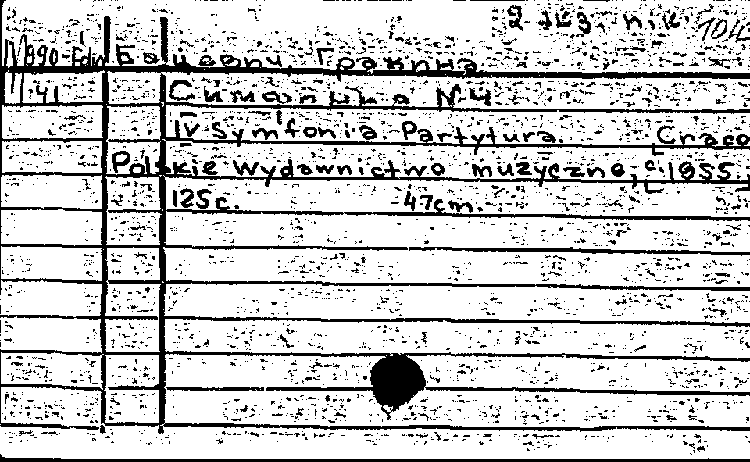 2 экз. н.к. 104
М890-Edin Бацевич, Гражина
41 Симфония №4
IV Symfonia. Partytura. Craco
Polskie wydawnictwo muzyczne, c. 1955.
125 с. 47cm.